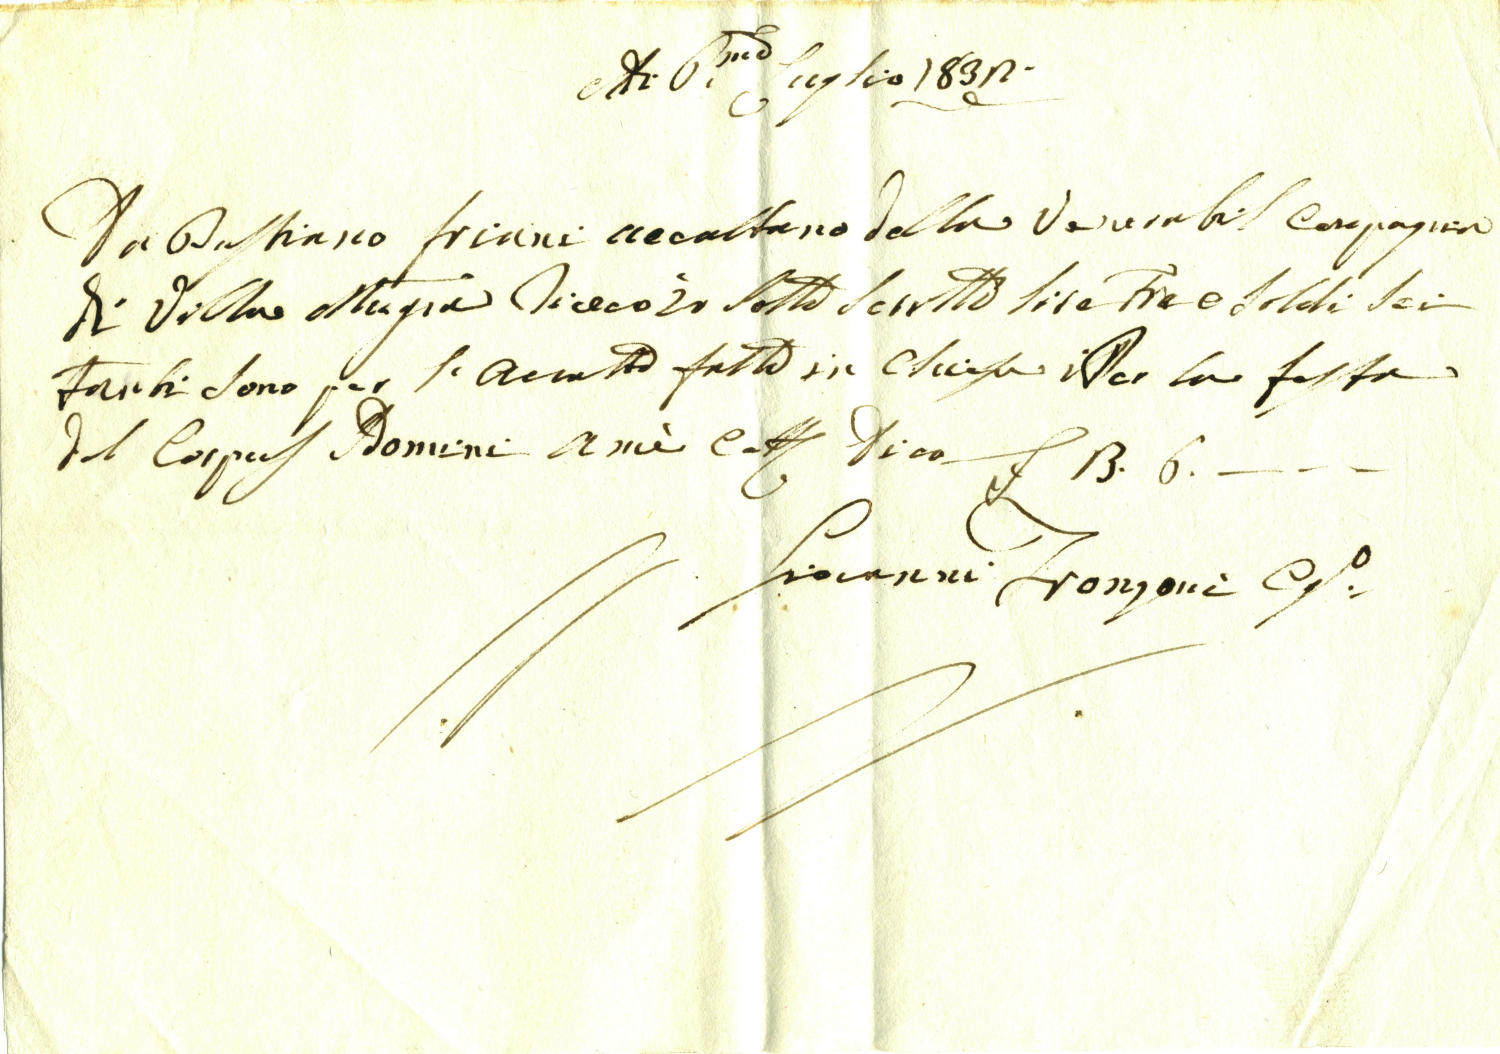 Adi P.mo Luglio 1832.
Da Bastiano friani accattano della Venerabil Compagnia
di Villa Magna Riceve Io Sotto Scritto lire Tre e Soldi Sei
Tanti Sono per l' accatto fatto in Chiesa Per la festa
del Corpus Domini a me Dico £ 3. 6. ---
Giovanni Tronzoni